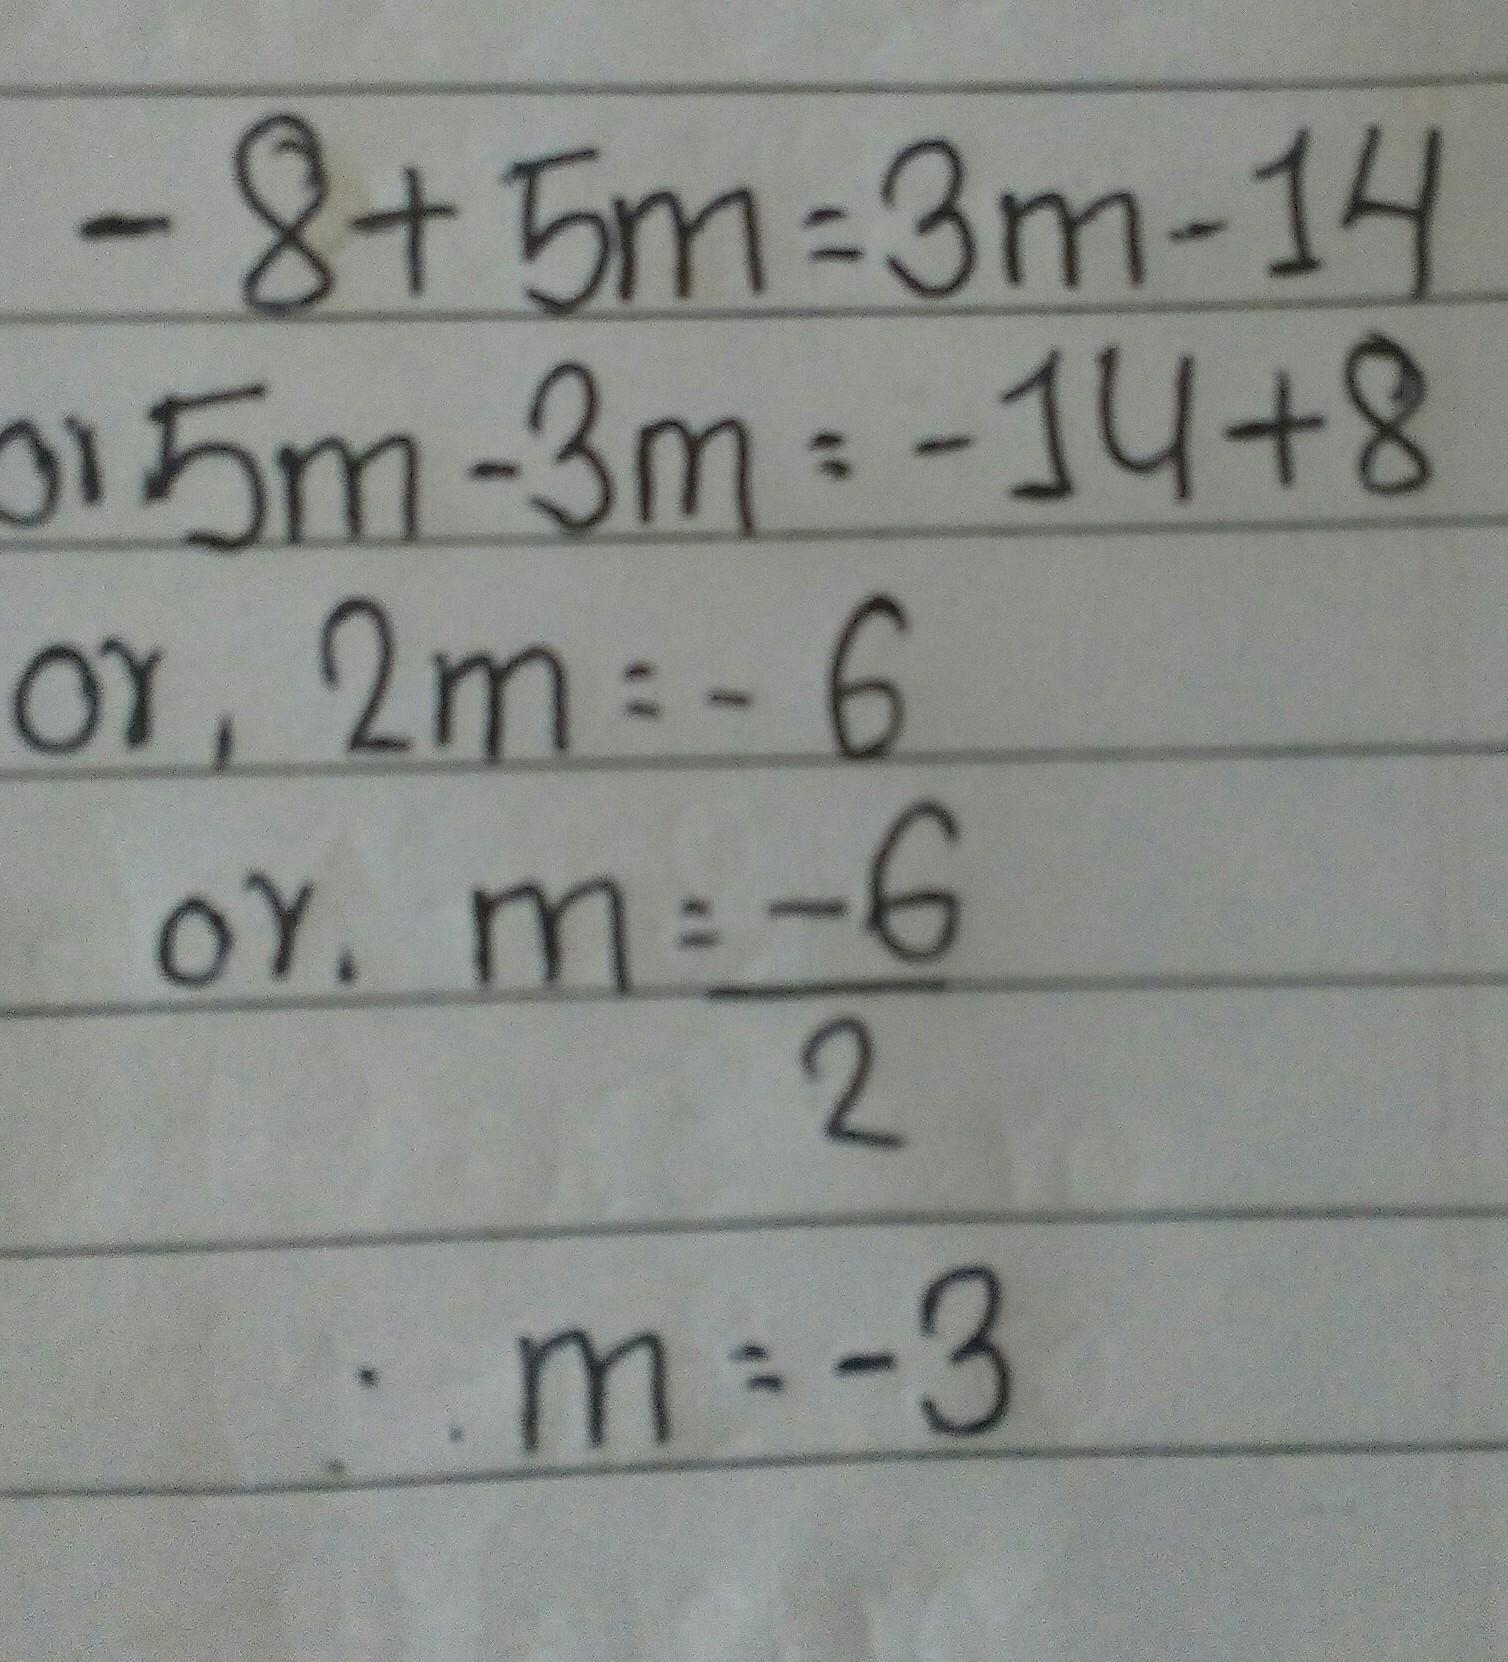 - 8 + 5m = 3m - 14
or 5m - 3m = -14 + 8
or, 2m = - 6
or. m = -6
2
∴ m = -3